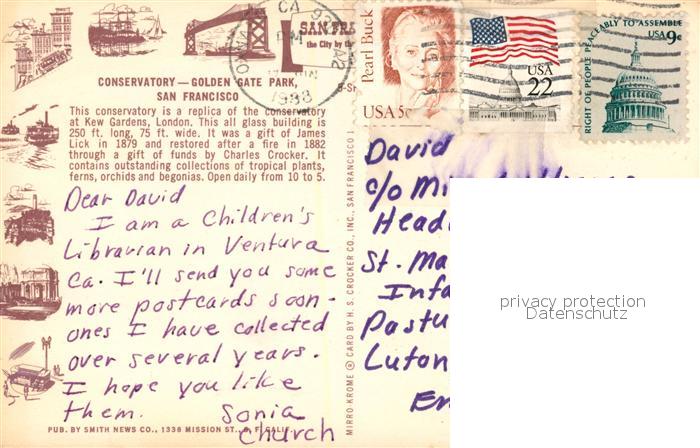 SAN FRAN
the City by the
CONSERVATORY—GOLDEN GATE PARK,
SAN FRANCISCO
This conservatory is a replica of the conservatory
at Kew Gardens, London. This all glass building is
250 ft. long, 75 ft. wide. It was a gift of James
Lick in 1879 and restored after a fire in 1882
through a gift of funds by Charles Crocker. It
contains outstanding collections of tropical plants,
ferns, orchids and begonias. Open daily from 10 to 5.
Dear David
I am a Children's
Librarian in Ventura
Ca. I'll send you some
more postcards soon-
ones I have collected
over several years.
I hope you like
them. Sonia
Church
PUB. BY SMITH NEWS CO., 1336 MISSION ST., S. F., CALIF.
MIRRO-KROME ® CARD BY H. S. CROCKER CO., INC., SAN FRANCISCO 1
CA
PM
1988
Pearl Buck
USA 5c
USA
22
RIGHT OF PEOPLE PEACEABLY TO ASSEMBLE
USA 9c
David
c/o
Head
St. Ma
Infa
Pastu
Luton
En
privacy protection
Datenschutz